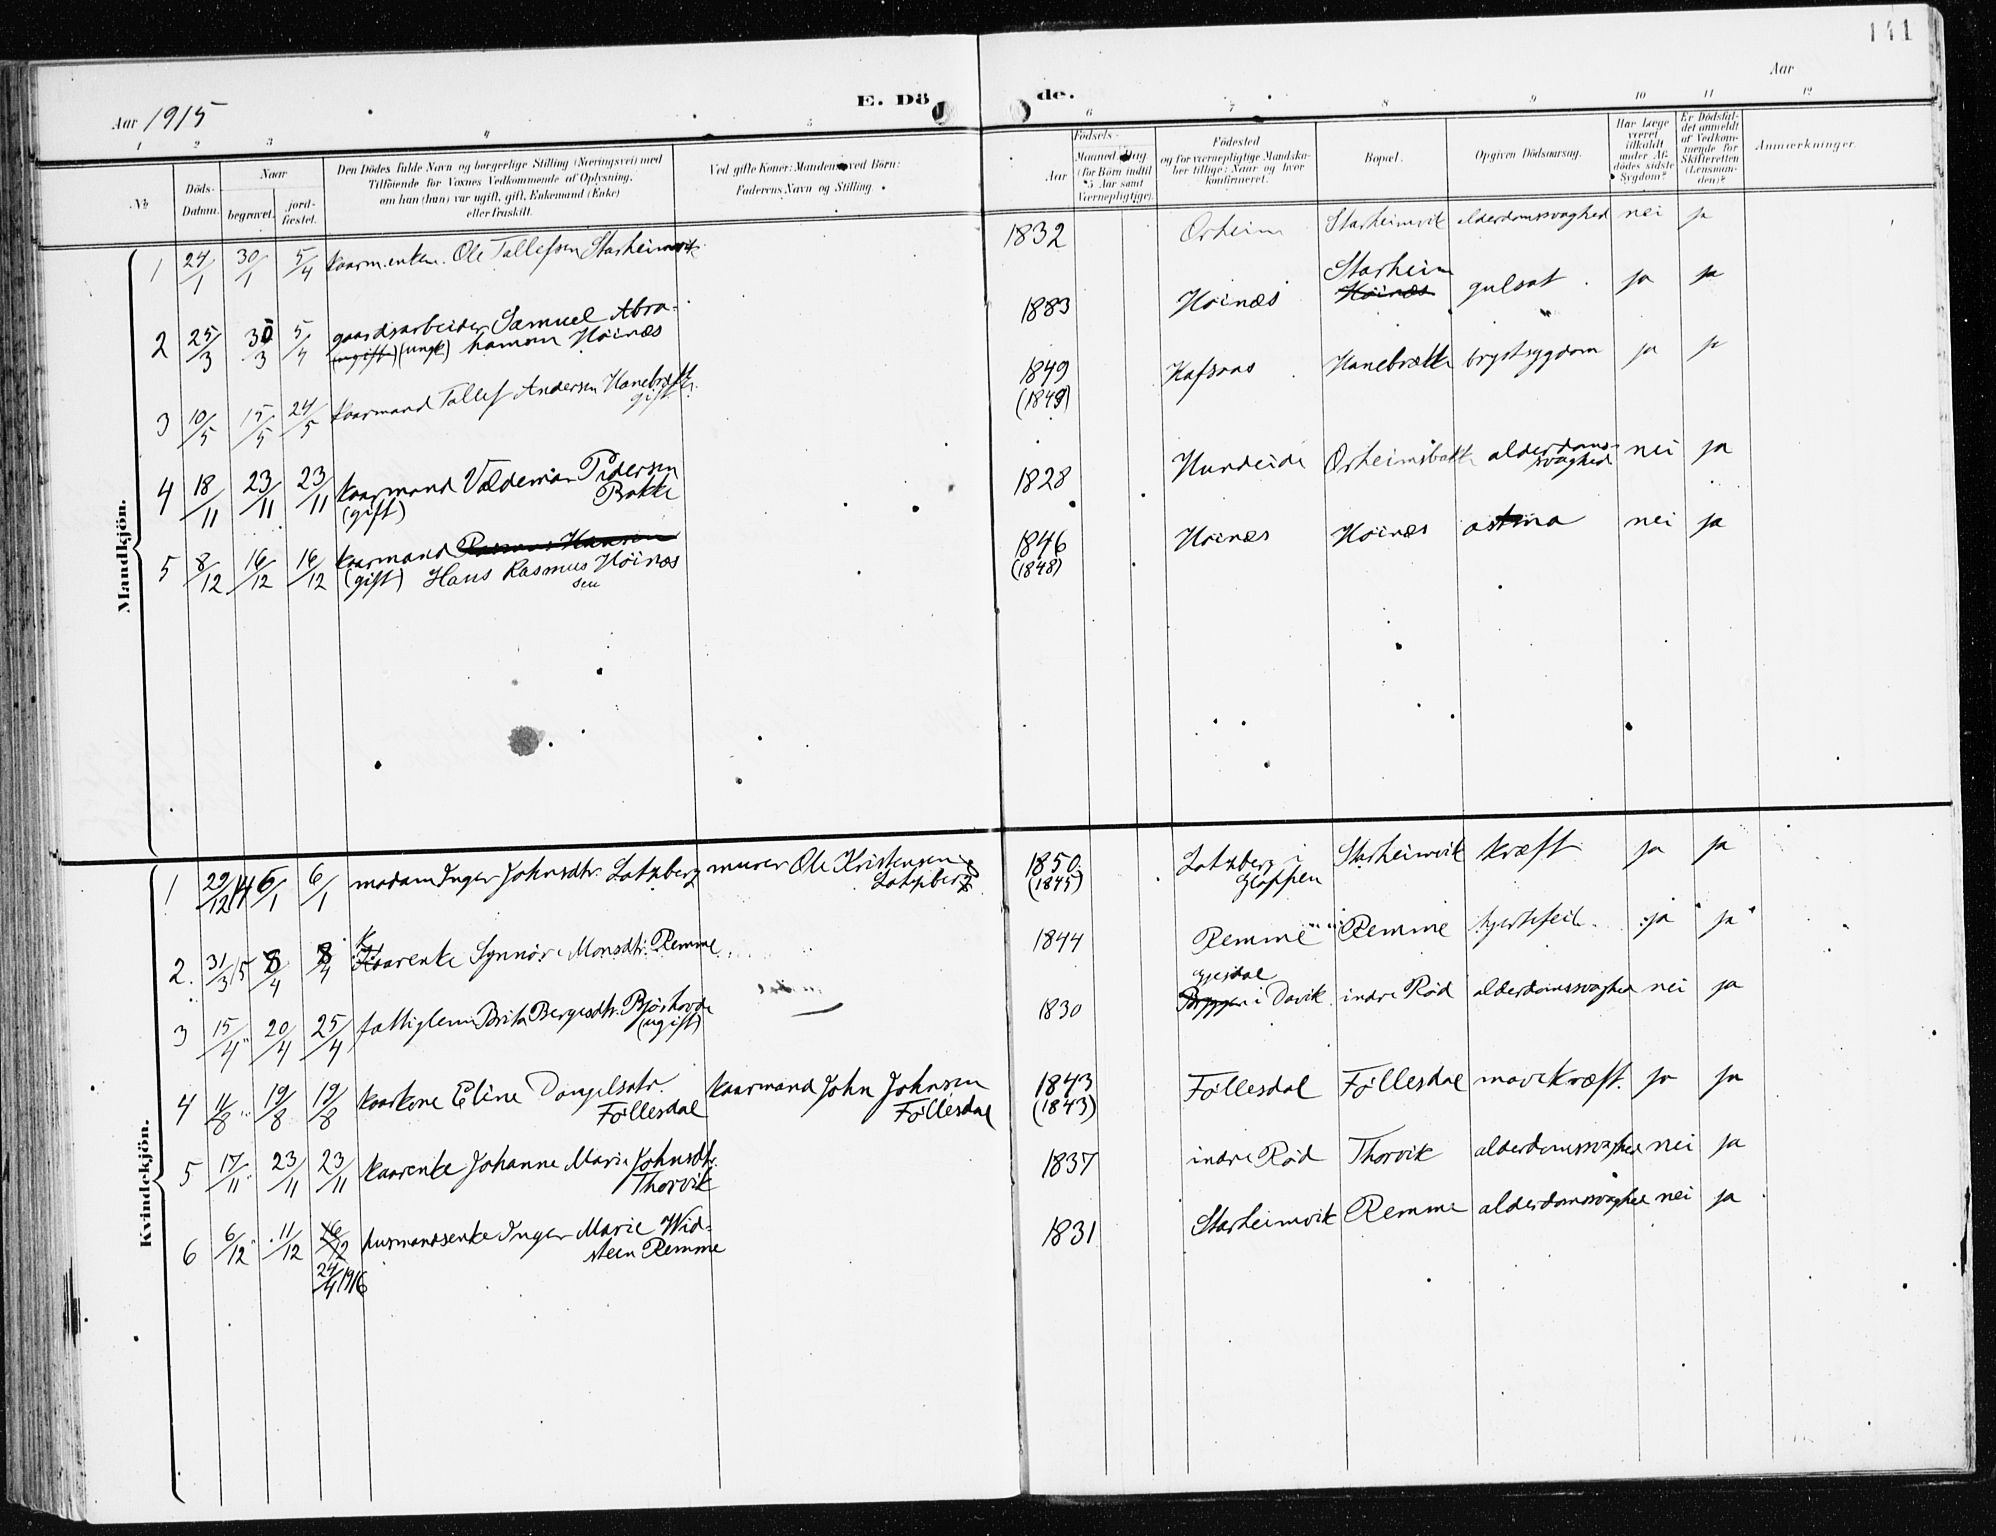 141
Aar 1915
E. Döde.
Aar
1 2 3 4 5 6 7 8 9 10 11 12
No.
Döds-Datum.
Naar
begravet.
jord-fæstet.
Den Dödes fulde Navn og borgerlige Stilling (Næringsvei) med
Tilföiende for Voxnes Vedkommende af Oplysning,
om han (hun) var ugift, gift, Enkemand (Enke)
eller fraskilt.
Ved gifte Koner: Mandens, ved Börn:
Faderens Navn og Stilling.
Födsels-
Aar
Maaned, Dag
(for Börn indtil
5 Aar samt
Værnepligtige).
Födested
og for værnepligtige Mandska-
ber tillige: Naar og hvor
konfirmeret.
Bopæl.
Opgiven Dödsaarsag.
Har Læge
været
tilkaldt
under Af-
dödes sidste
Sygdom?
Er Dödsfal-
det anmeldt
af Vedkom-
mende for
Skifteretten
(Lensman-
den)?
Anmærkninger
Mandkjön.
1 24/1 30/1 5/4 kaarm.enkem. Ole Tollefsen Starheimvik 1832 Orheim Starheimvik alderdomssvaghed nei ja
2 25/3 30/3 5/4 gaardsarbeider Samuel Abra-
(ugift) (ungk) hamsen Höinæs 1883 Höinæs Starheim
Höinæs gulsot ja ja
3 10/5 15/5 24/5 kaarmand Tollef Andersen Hanebrække
gift 1849
(1849) Hafsaas Hanebrække brystsygdom ja ja
4 18/11 23/11 23/11 kaarmand Valdemar Pedersen
(gift) Bakke 1828 Hundeide Orheimsbakk alderdoms-
svaghed nei ja
5 8/12 16/12 16/12 kaarmand Rasmus Hansen
(gift) Hans Rasmus Höinæs
sen 1846
(1848) Höinæs Höinæs astma nei ja
Kvindekjön.
1 29/12 14 6/1 6/1 madam Inger Johnsdtr. Lotzberg murer Ole Kristensen
Lotzberg 1850
(1845) Lotzberg i
Gloppen Starheimvik kræft ja ja
2 31/3 15 8/4 8/4 Kaarenke Synnöve Monsdtr. Remme 1844 Remme Remme hjertefeil ja ja
3 15/4 20/4 25/4 fattiglem Brita Bergesdtr. Björhovde
(ugift) 1830 Gjesdal
i Davik indre Röd alderdomssvaghed nei ja
4 11/8 19/8 19/8 kaarkone Eline Danielsdtr.
Föllesdal kaarmand John Johnsen
Föllesdal 1843
(1843) Föllesdal Föllesdal mavekræft. ja ja
5 17/11 23/11 23/11 kaarenke Johanne Marie Johnsdtr.
Thorvik 1837 indre Röd Thorvik alderdomssvaghed nei ja
6 6/12 11/12 16/12 husmandsenke Inger Marie Wid-
steen Remme 1831 Starheimvik Remme alderdomssvaghed nei ja
24/4 1916